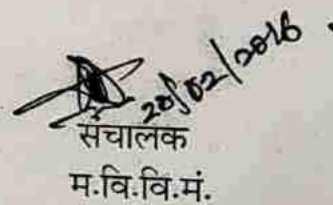 20/02/2016
संचालक
म.वि.वि.मं.